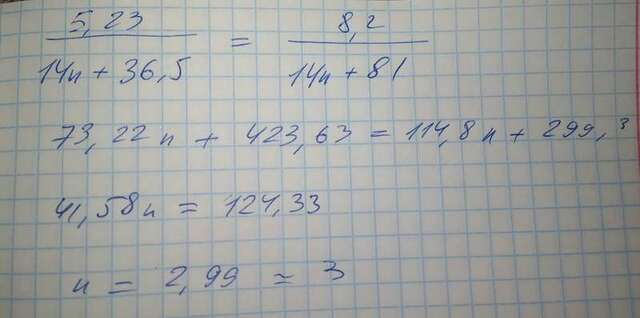 5,23 / 14n + 36,5 = 8,2 / 14n + 81
73,22n + 423,63 = 114,8n + 299,3
41,58n = 124,33
n = 2,99 ≈ 3